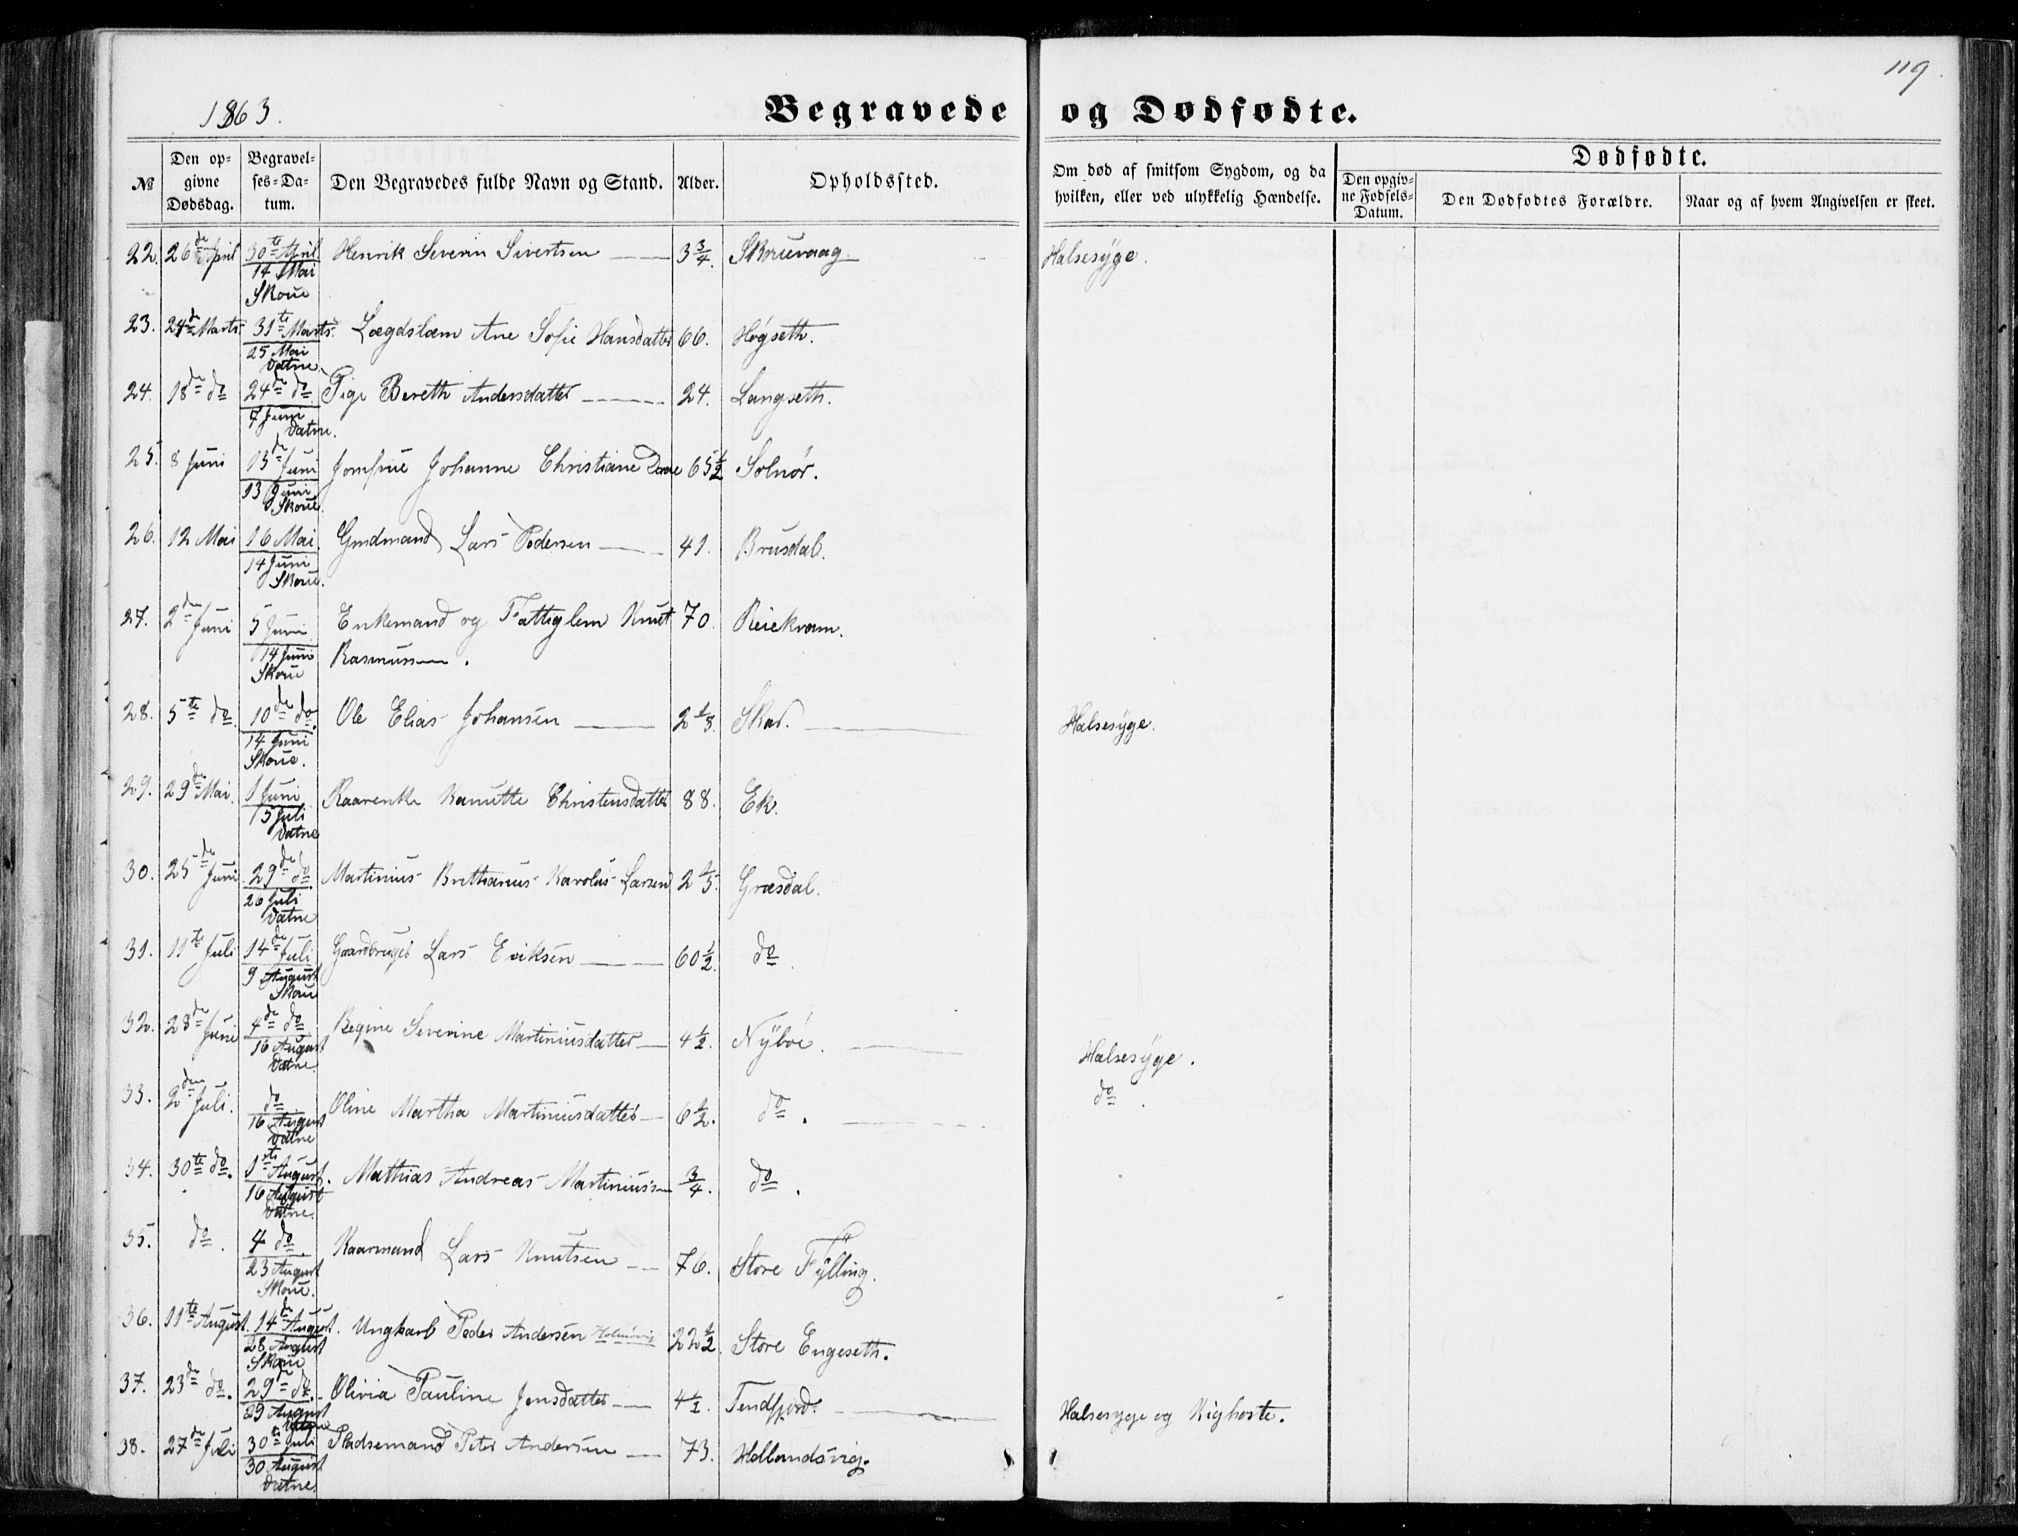 119.
1863.
Begravede og Dødfødte.
№
Den opgivne Dødsdag.
Begravelses-Datum.
Den Begravedes fulde Navn og Stand.
Alder.
Opholdssted.
Om død af smitsom Sygdom, og da hvilken, eller ved ulykkelig Hændelse.
Dødfødte.
Den opgivne Fødsels-Datum.
Den Dødfødtes Forældre.
Naar og af hvem Angivelsen er skeet.
22. 26de April 30te April Henrik Severin Sivertsen 3 3/4. Skouevaag. Halsesÿge.
14 Mai
Skoue
23. 24de Marts 31te Marts. Lægdslæm Ane Sofie Hansdatter 66. Høgseth.
25 Mai
Vatne.
24. 18de do 24de do. Pige Bereth Andersdatter 24. Langseth.
7 Juni
Vatne.
25. 8 Juni 13de Juni Jomfrue Johanne Christiane 65 1/2 Solnør.
13 Juni
Skoue.
26. 12 Mai 16 Mai. Gmdmand Lars Pedersen 41. Brusdal.
14 Juni
Skoue.
27. 2den Juni 5 Juni Enkemand og Fattiglem Knut 70. Reiekvam.
14 Juni Rasmussen.
Skoue
28. 5te do. 10de do. Ole Elias Johansen 2 1/8. Skar. Halsesÿge.
14 Juni
Skoue.
29. 29de Mai. 1 Juni Kaarenke Kanutte Christensdatter 88. Ek.
15 Juli
Vatne
30. 25de Juni 29de do. Martinius Karolus Larsen 2 1/5. Græsdal.
26 Juli
Vatne
31. 11te Juli 14de Juli Gaardbruger Lars Eriksen 60 1/2. do.
9 August
Skoue
32. 28de Juni 4de do Regine Severine Martiniusdatter 4 1/2. Nÿbøe. Halsesÿge.
16 August
Vatne.
33. 2den Juli. do Oline Martha Martiniusdatter 6 1/2. do. do.
16 August
Vatne
34. 30te do. 1ste August. Mathias Andreas Martiniussen 3/4. do.
16 August
Vatne.
35. do. 4 do Kaarmand Lars Knutsen 76. Store Fÿlling.
23 August
Skoue.
36. 11te August. 14de August. Ungkarl Peder Andersen 22 1/2 Store Engeseth.
28 August
Skoue
37. 23de do. 29de do. Olivia Pauline Jensdatter 4 1/2. Tendfjord. Halsesyge og Kighoste.
29 August
Vatne
38. 27de Juli 30te Juli Pladsemand Peter Andersen 73. Hellandsvig.
30 August
Vatne.